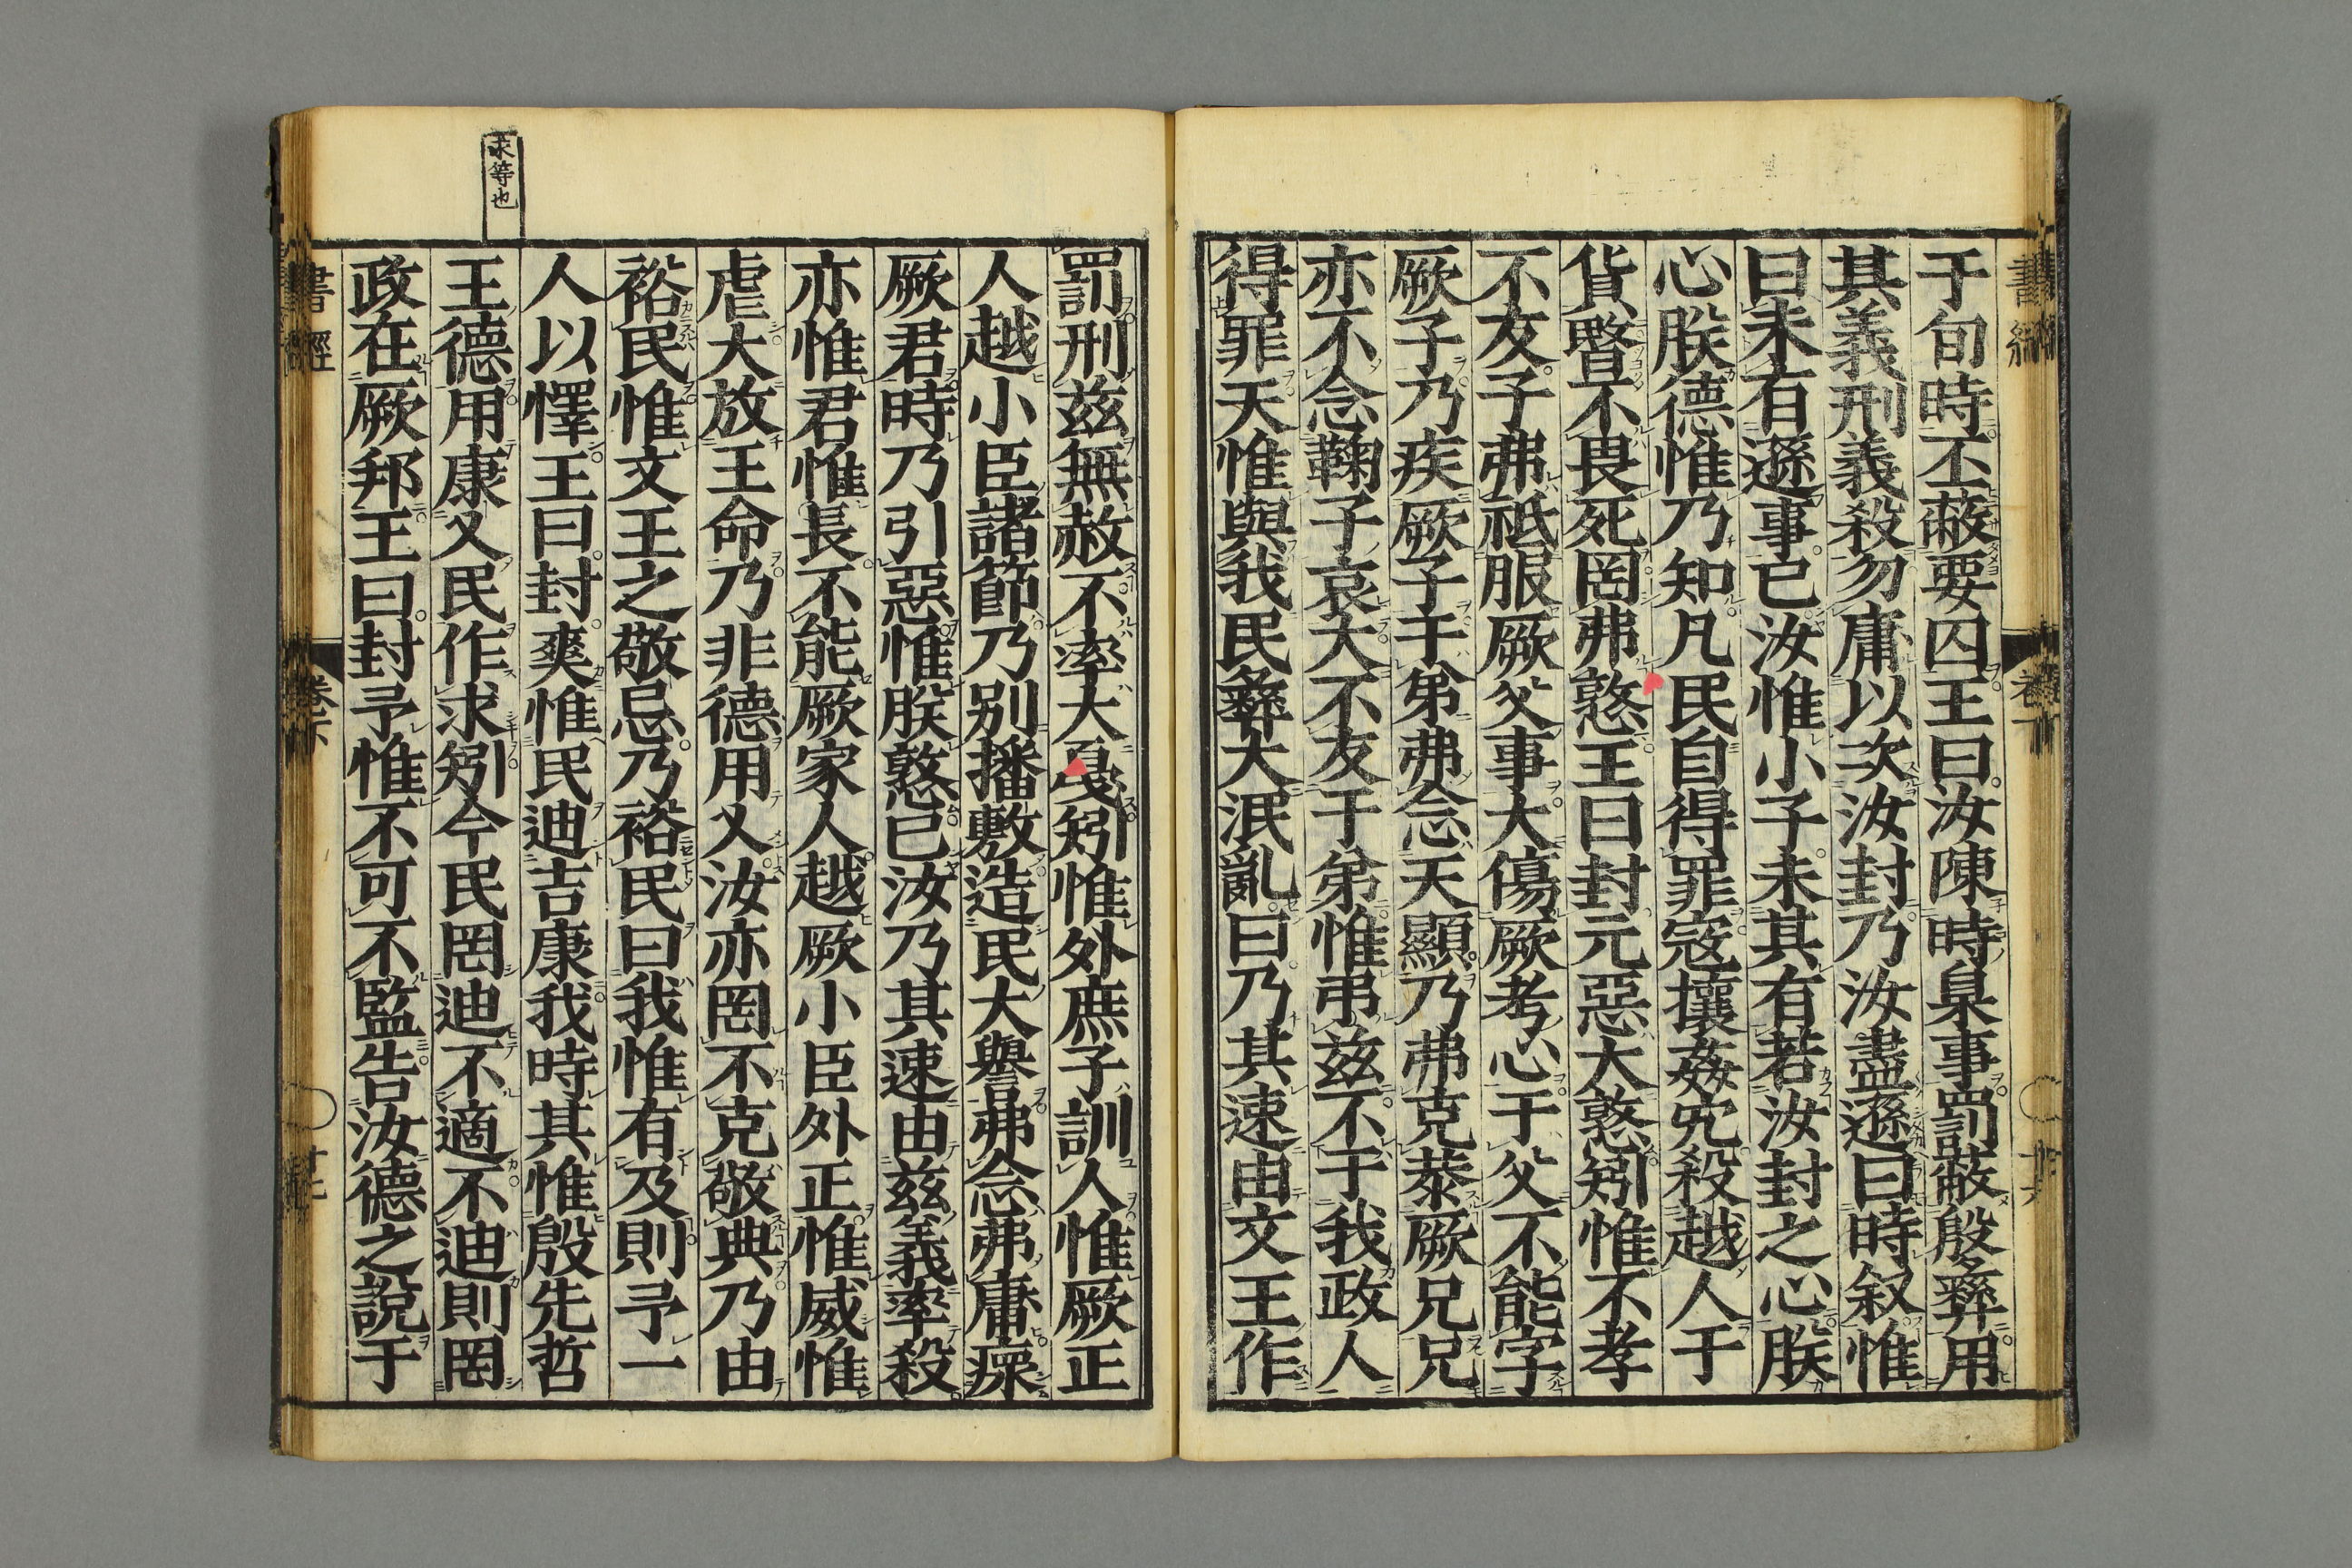 于旬時丕蔽要囚王曰汝陳時臬事罰蔽殷彝用
其義刑義殺勿庸以次汝封乃汝盡遜曰時叙惟
曰未有遜事已汝惟小子未其有若汝封之心朕
心朕德惟乃知凡民自得罪寇攘姦宄殺越人于
貨暋不畏死罔弗憝王曰封元惡大憝矧惟不孝
不友子弗祗服厥父事大傷厥考心于父不能字
厥子乃疾厥子于弟弗念天顯乃弗克恭厥兄兄
亦不念鞠子哀大不友于弟惟弔茲不于我政人
得罪天惟與我民彝大泯亂曰乃其速由文王作
罰刑茲無赦不率大戞矧惟外庶子訓人惟厥正
人越小臣諸節乃別播敷造民大譽弗念弗庸瘝
厥君時乃引惡惟朕憝已汝乃其速由茲義率殺
亦惟君惟長不能厥家人越厥小臣外正惟威惟
虐大放王命乃非德用乂汝亦罔不克敬典乃由
裕民惟文王之敬忌乃裕民曰我惟有及則予一
人以懌王曰封爽惟民迪吉康我時其惟殷先哲
求等也
王德用康乂民作求矧今民罔迪不適不迪則罔
政在厥邦王曰封予惟不可不監告汝德之說于
書經
卷下